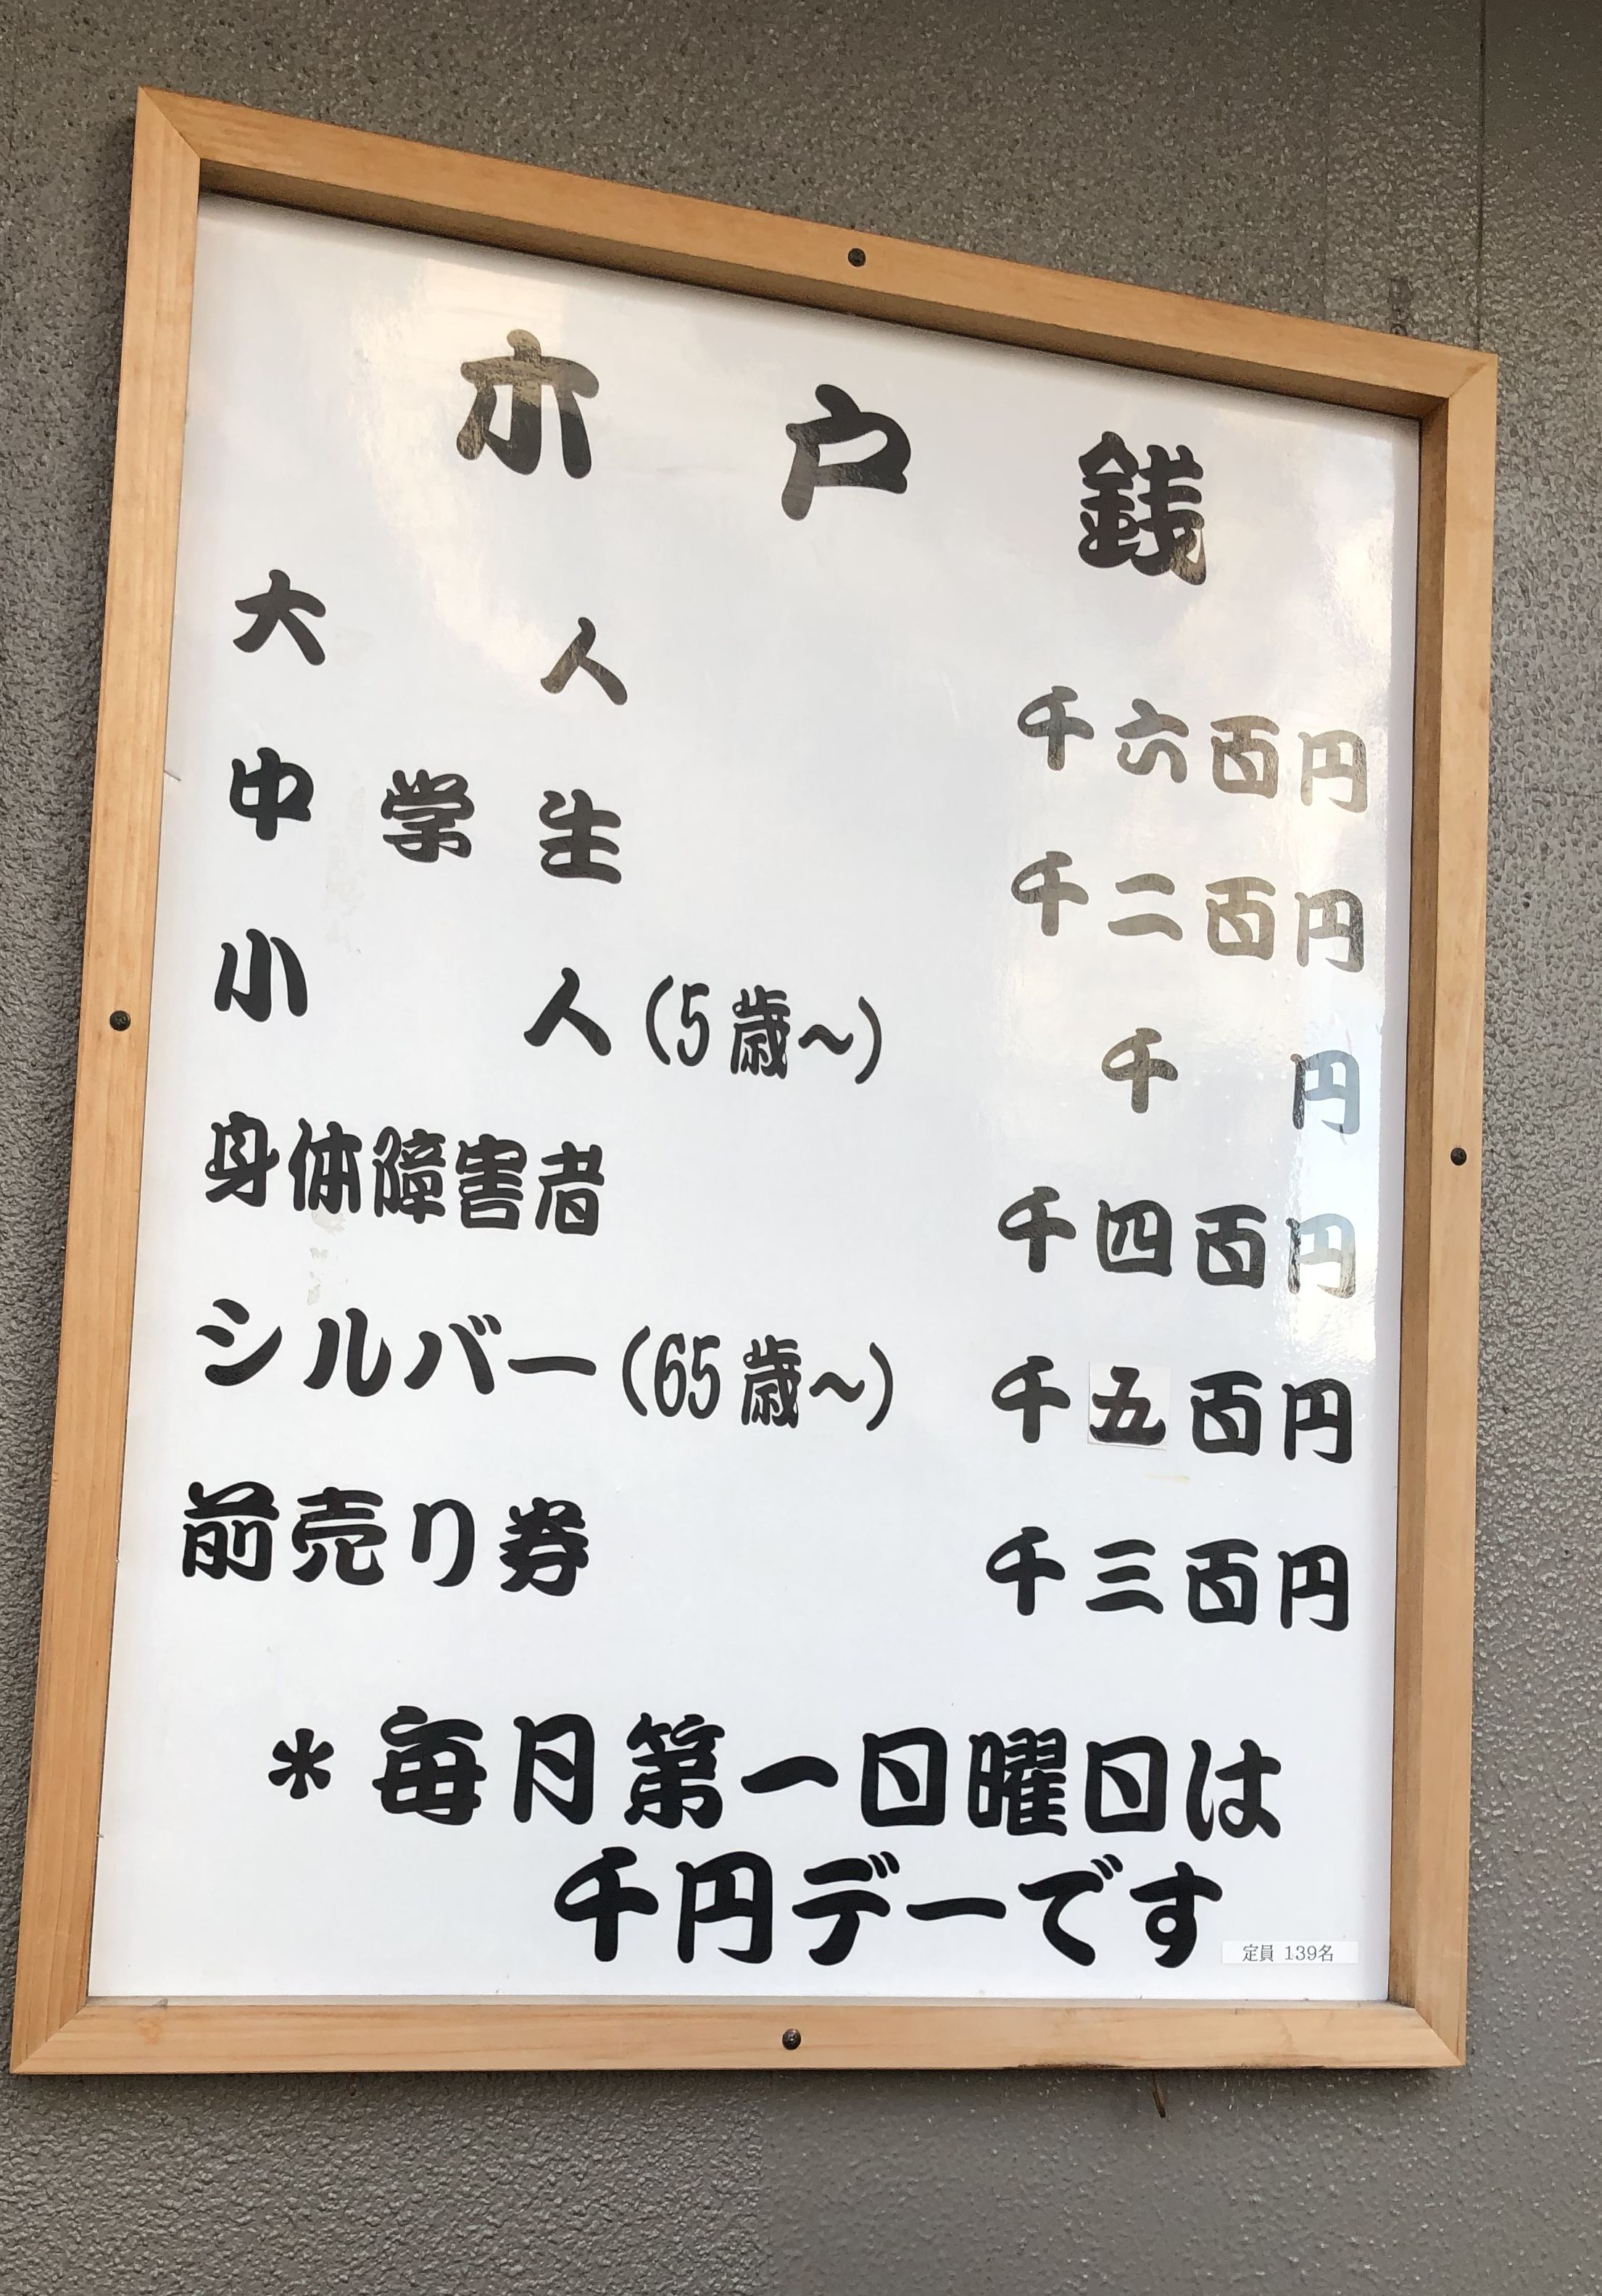 木戸銭
大人 千六百円
中学生 千二百円
小人(5歳〜) 千円
身体障害者 千四百円
シルバー(65歳〜) 千五百円
前売り券 千三百円
＊毎月第一日曜日は
千円デーです
定員 139名